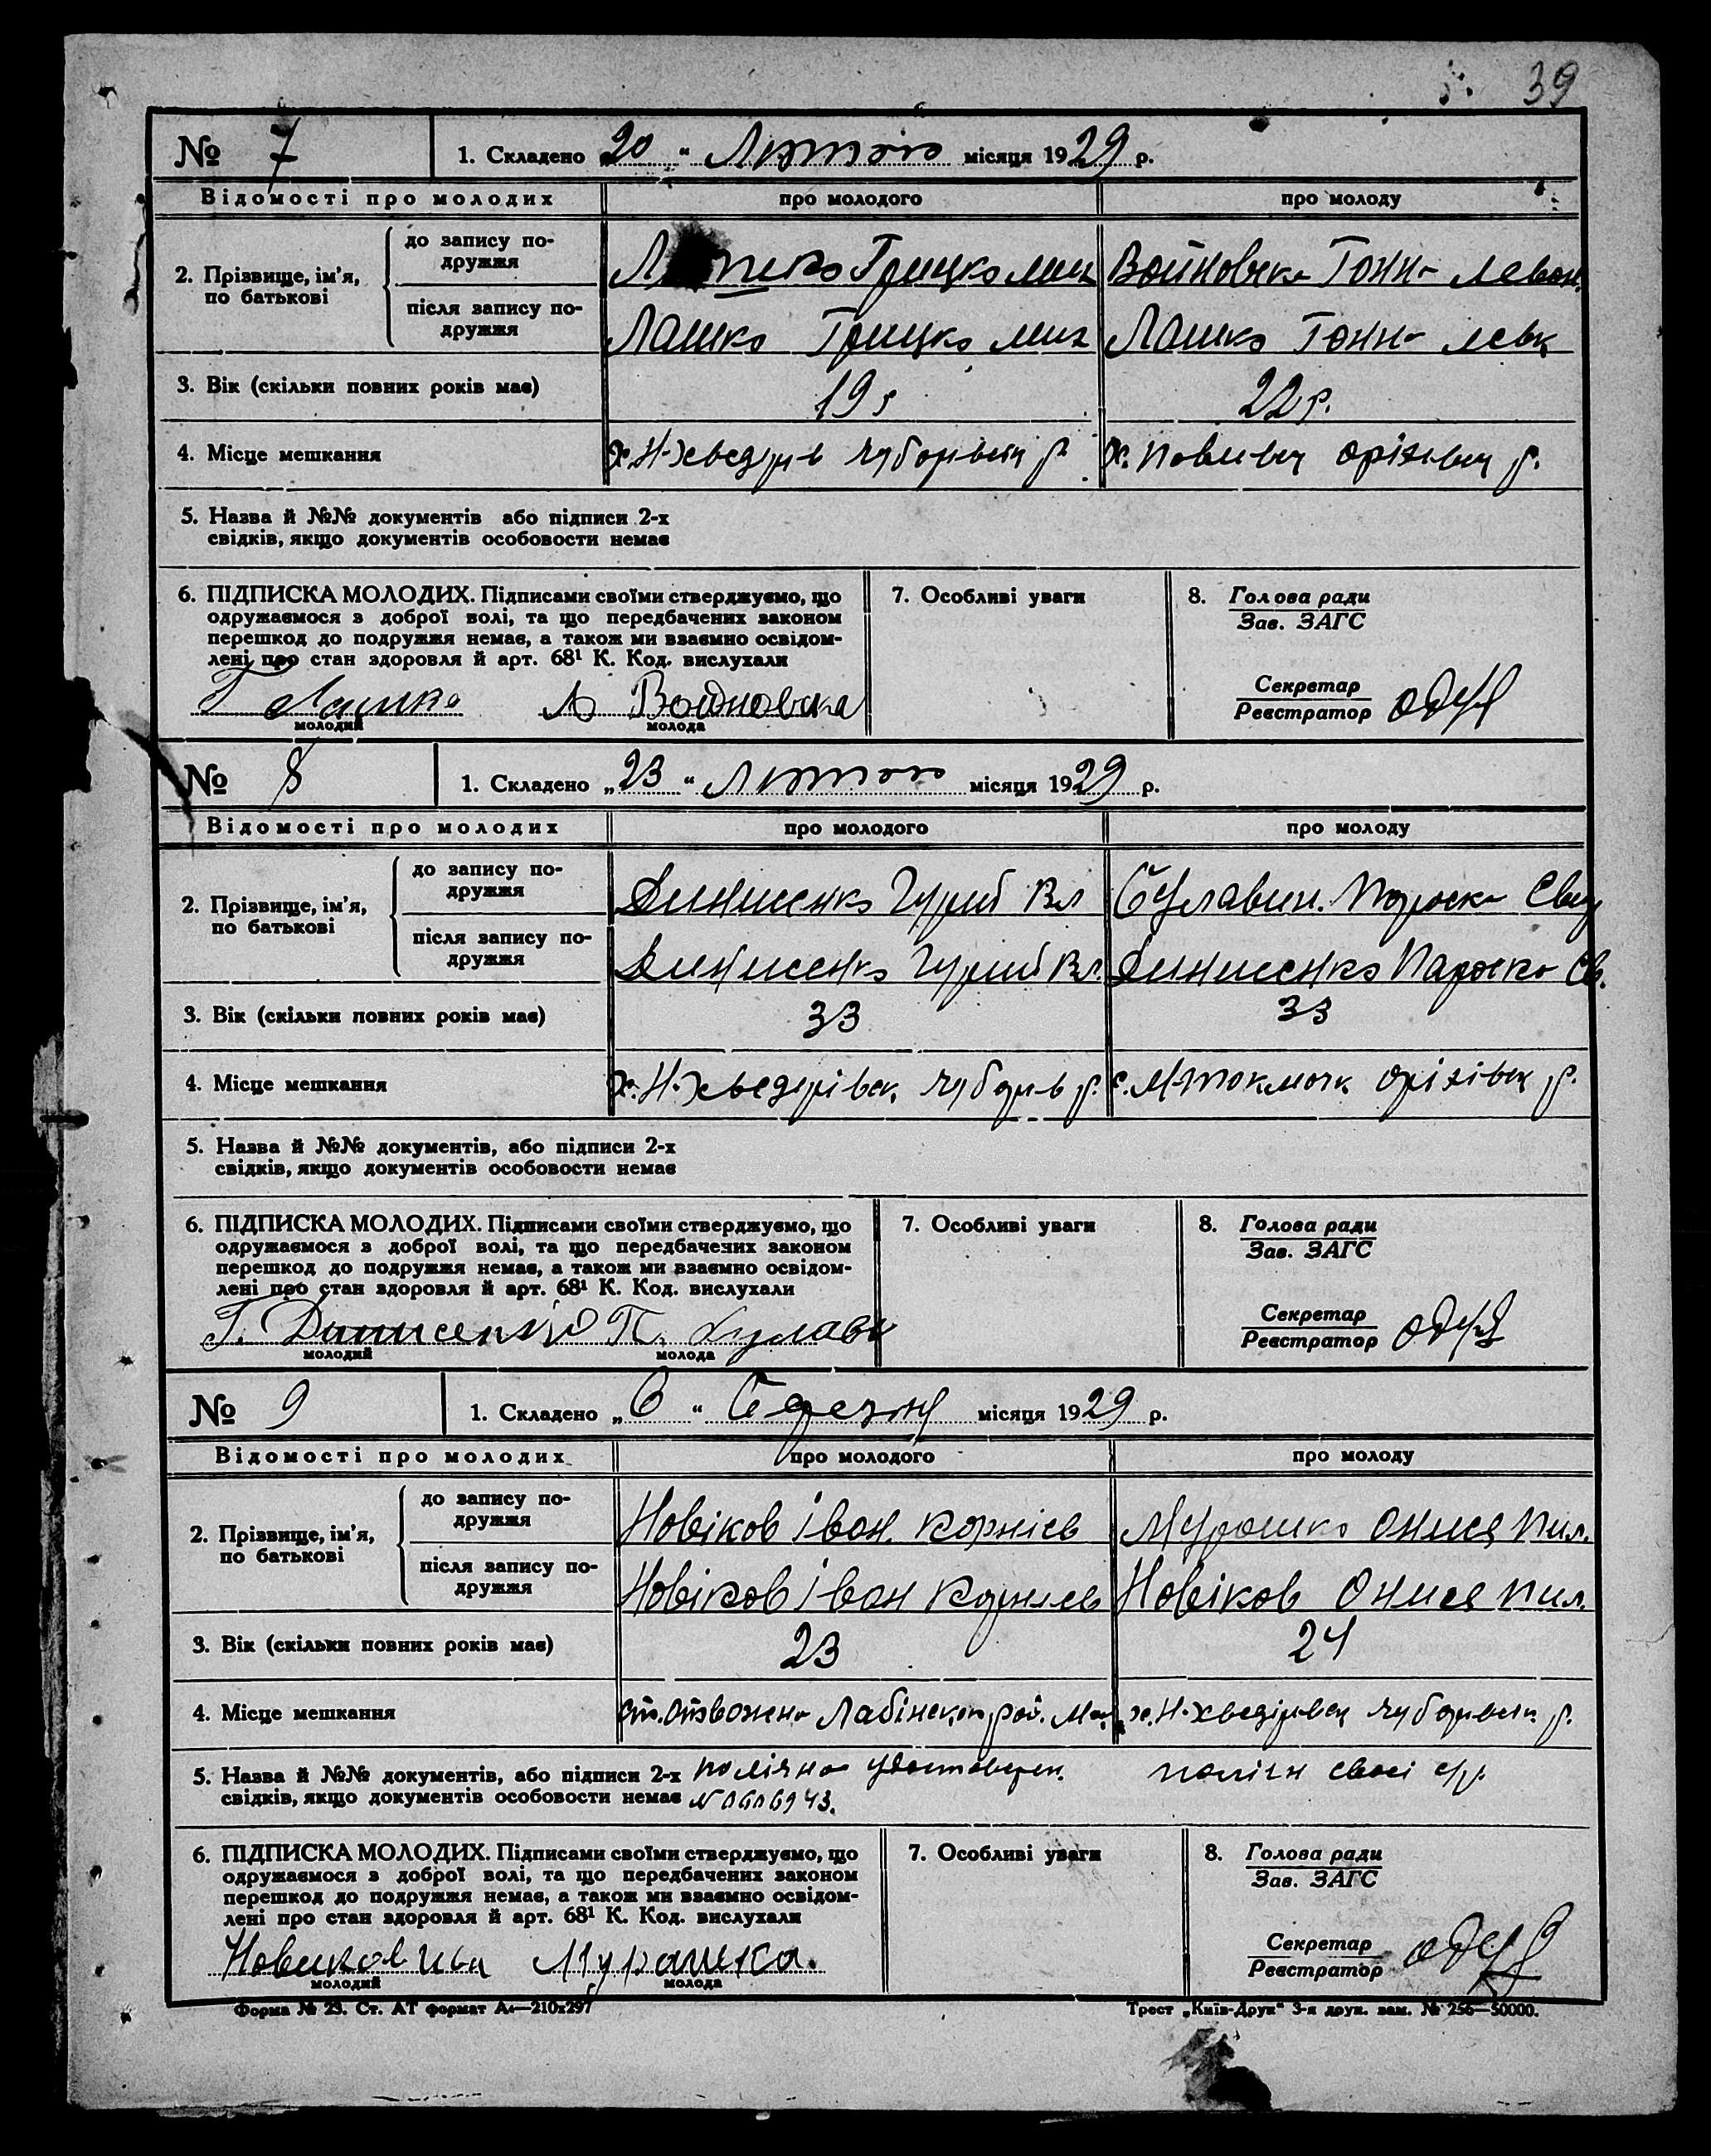 39
№ 7 1. Складено „20“ Лютого місяця 1929 р.
Відомості про молодих про молодого про молоду
2. Прізвище, ім’я, по батькові
до запису подружжя Грицко мих Войновска Ганна
після запису подружжя Лашко Грицко мих Лашко Ганна
3. Вік (скільки повних років має) 19 р 22 р.
4. Місце мешкання х. Н-Хведорів р. х. оріхівск р.
5. Назва й №№ документів або підписи 2-х
свідків, якщо документів особовости немає
6. ПІДПИСКА МОЛОДИХ. Підписами своїми стверджуємо, що
одружаємося з доброї волі, та що передбачених законом
перешкод до подружжя немає, а також ми взаємно освідом-
лені про стан здоровля й арт. 68¹ К. Код. вислухали
7. Особливі уваги
8. Голова ради
Зав. ЗАГС
Секретар
Реєстратор
Г Лашко Войновска
молодий молода
№ 8 1. Складено „23“ Лютого місяця 1929 р.
Відомості про молодих про молодого про молоду
2. Прізвище, ім’я, по батькові
до запису подружжя Динисенко Гурій Вл Параска
після запису подружжя Динисенко Гурій Вл. Динисенко Параска Св.
3. Вік (скільки повних років має) 33 33
4. Місце мешкання х. Н-Хведорівск р. с. М-Токмачк оріхівск р.
5. Назва й №№ документів, або підписи 2-х
свідків, якщо документів особовости немає
6. ПІДПИСКА МОЛОДИХ. Підписами своїми стверджуємо, що
одружаємося з доброї волі, та що передбачених законом
перешкод до подружжя немає, а також ми взаємно освідом-
лені про стан здоровля й арт. 68¹ К. Код. вислухали
7. Особливі уваги
8. Голова ради
Зав. ЗАГС
Секретар
Реєстратор
Г. Динисенко П.
молодий молода
№ 9 1. Складено „6“ Березня місяця 1929 р.
Відомості про молодих про молодого про молоду
2. Прізвище, ім’я, по батькові
до запису подружжя Новіков Іван Корнієв Мурашко Онися Пил.
після запису подружжя Новіков Іван Корнієв Новіков Онися Пил.
3. Вік (скільки повних років має) 23 24
4. Місце мешкання ст. Отважена Лабінского рай. х. Н-Хведорівск р.
5. Назва й №№ документів, або підписи 2-х
свідків, якщо документів особовости немає
6. ПІДПИСКА МОЛОДИХ. Підписами своїми стверджуємо, що
одружаємося з доброї волі, та що передбачених законом
перешкод до подружжя немає, а також ми взаємно освідом-
лені про стан здоровля й арт. 68¹ К. Код. вислухали
7. Особливі уваги
8. Голова ради
Зав. ЗАГС
Секретар
Реєстратор
Новиков Ива Мурашка.
молодий молода
Форма № 23. Ст. АТ формат А₄—210х297 Трест „Київ-Друк“ 3-я друк. зам. № 256—50000.